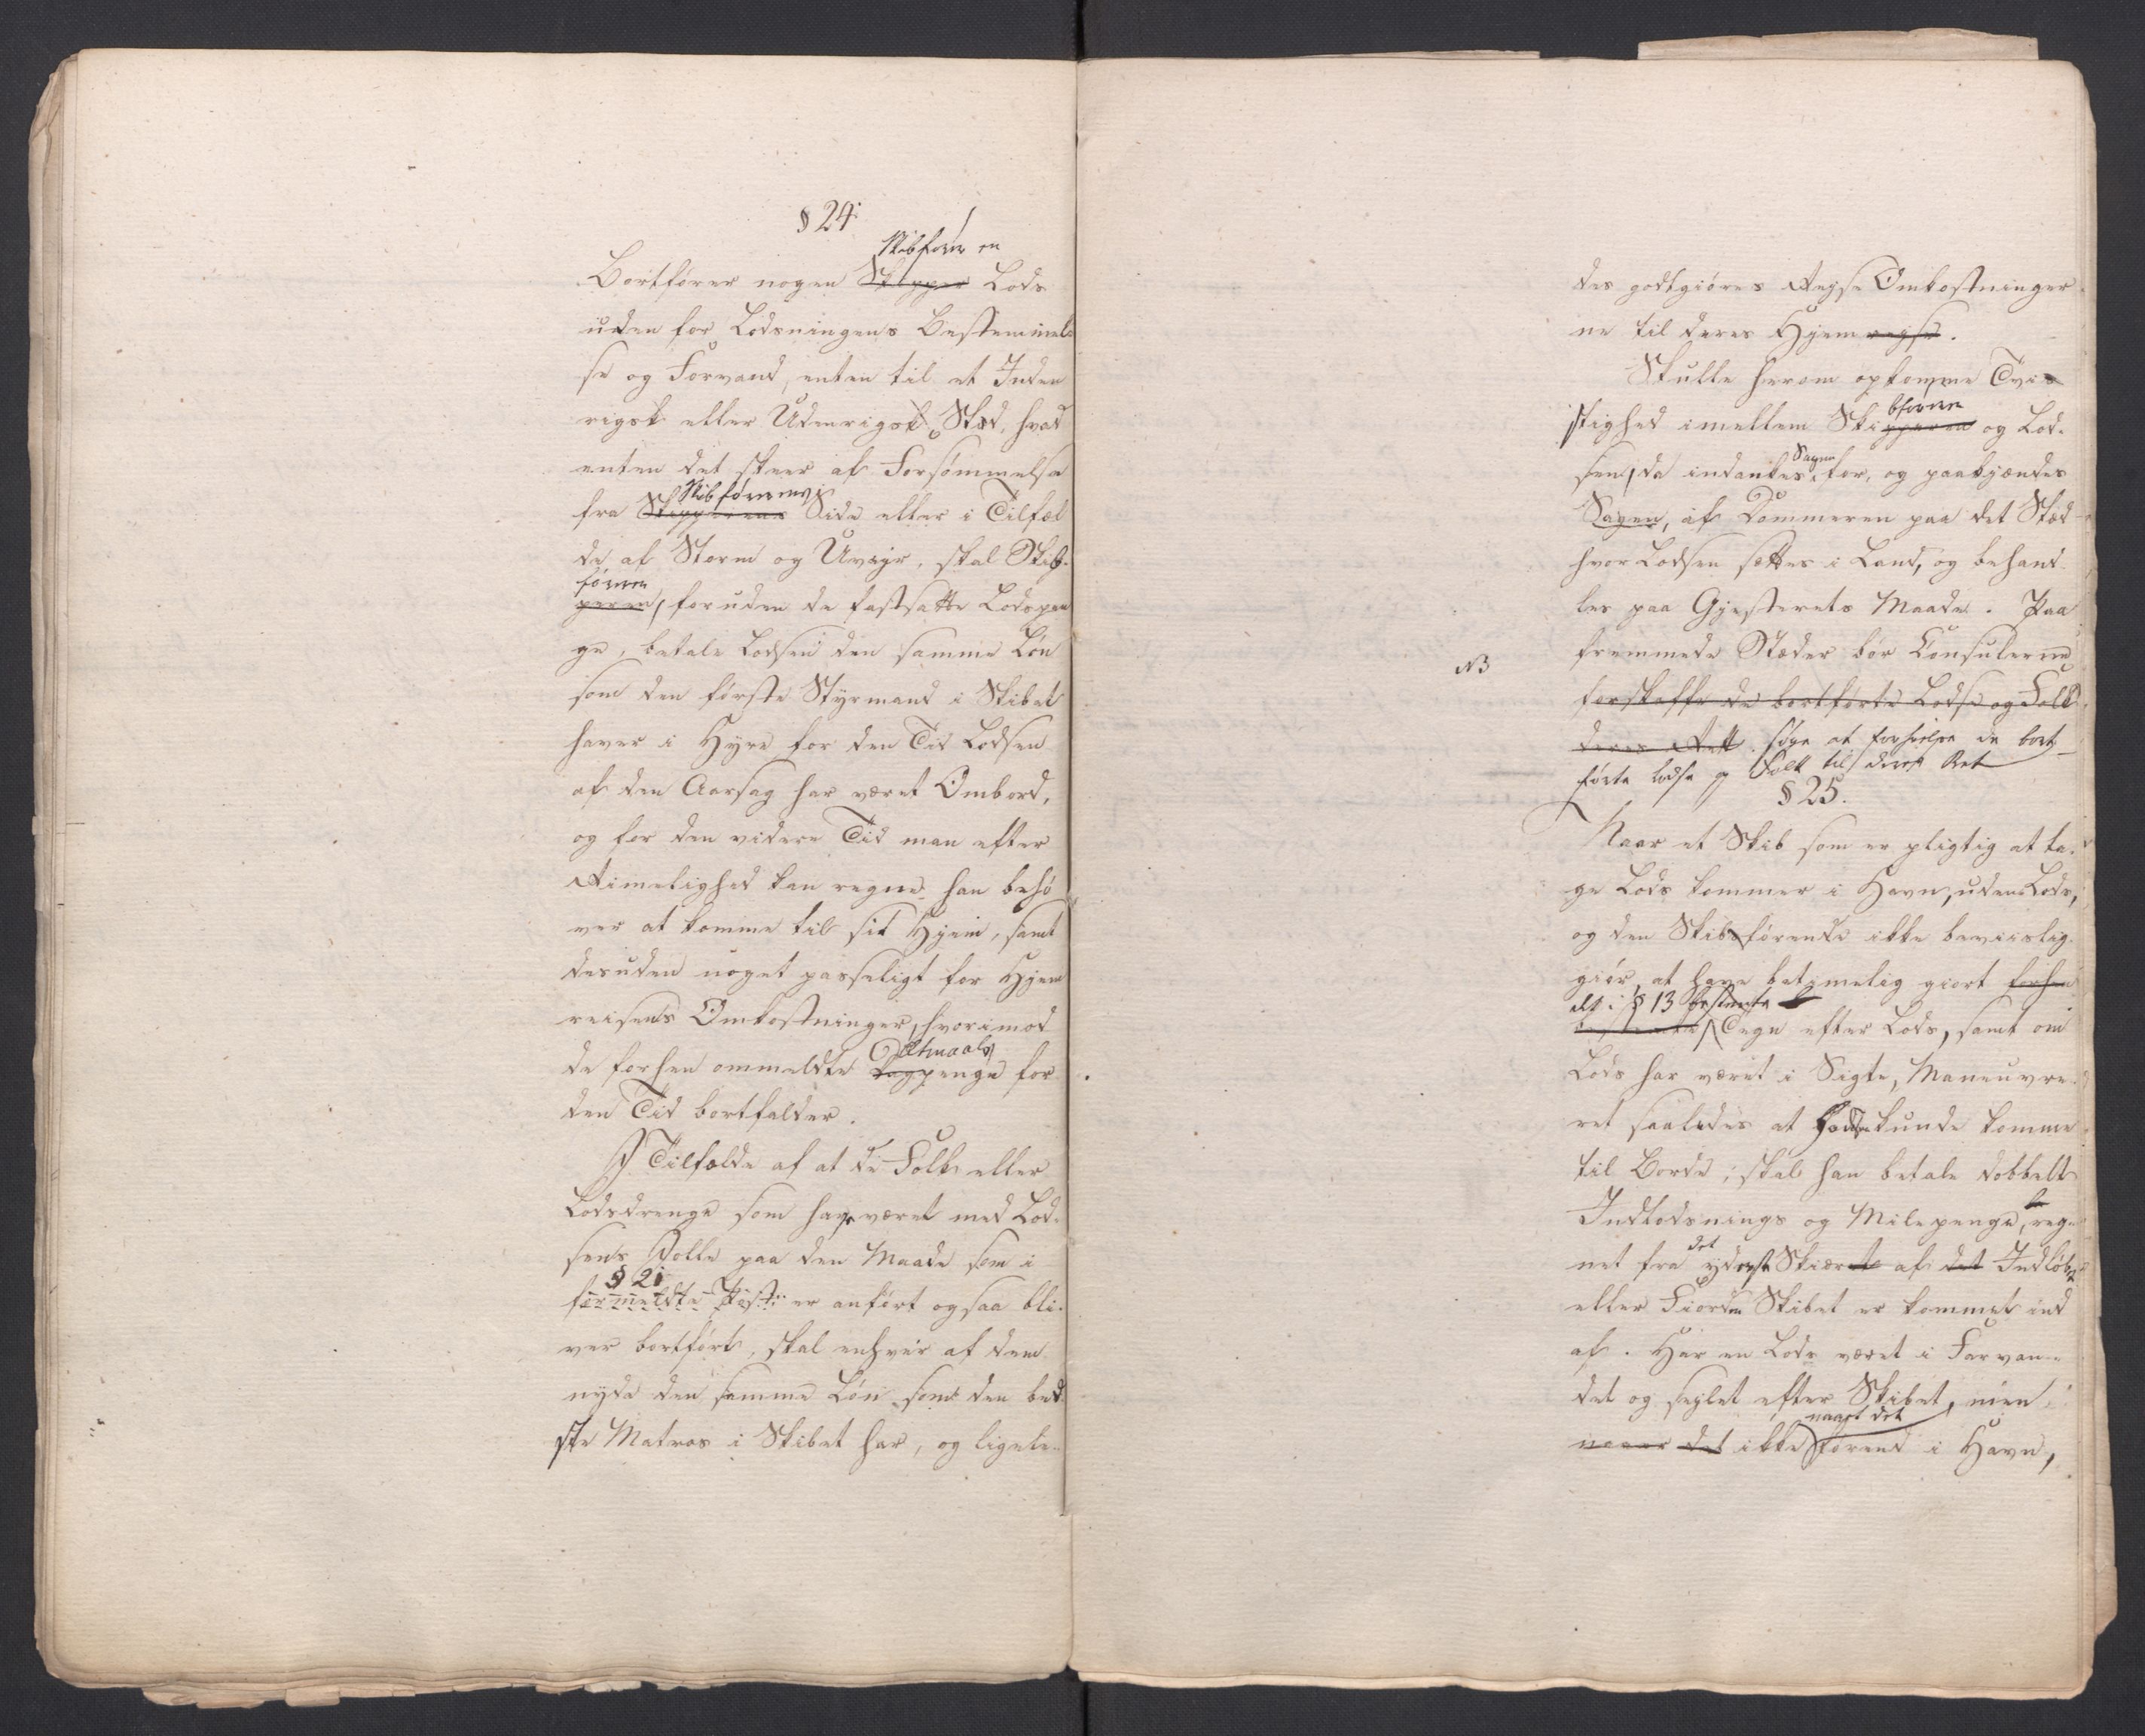 § 24
Skibsfører en
Bortfører nogen Skipper Lods
uden for Lodsningens Bestemmel-
se og Forvand, enten til et Inden
rigsk eller Udenrigsk Stæd, hvad
enten det skeer af Forsømmelse
Skibsførerens
fra Skipperens Side eller i Tilfæl
de af Storm og Uveyr, skal Skib-
føreren
peren, foruden de fastsatte Lodspen
ge, betale Lodsen den samme Løn
som den første Styrmand i Skibet
haver i Hyre for den Tid Lodsen
af den Aarsag har været Ombord,
og for den videre Tid man efter
Rimelighed kan regne han behø
ver at komme til sit Hjem, samt
desuden noget passeligt for Hjem
reisens Omkostninger, hvorimod
Etmaals
de forhen ommeldte Dagpenge for
den Tid bortfalder.
I Tilfælde af at de Folk eller
Lodsdrenge som have været med Lod-
sens Jolle paa den Maade som i
§ 21
formeldte Post er anført ogsaa bli-
ver bortført, skal enhver af dem
nyde den samme Løn som den bed
ste Matros i Skibet har, og ligele-
des godtgiøres Reyse Omkostninger
ne til deres Hjem reyse.
Skulle herom opkomme Tvi-
bføreren
stighed imellem Skipperen og Lod-
Sagen
sen, da indankes for, og paakjændes
Sagen, af Dommeren paa det Stæd
hvor Lodsen sættes i Land, og behand-
les paa Gjesterets Maade. Paa
fremmede Stæder bør Consulerne
NB
forskaffe de bortførte Lodse og Folk
deres Rett. søge at forhielpe de bort-
førte Lodse og Folk til deres Ret
§ 25.
Naar et Skib som er pligtig at ta-
ge Lods kommer i Havn, uden Lods,
og den Skibsførende ikke beviislig-
giør, at have betimelig giort forhen
det i § 13 bestemte
bestemte Tegn efter Lods, samt om
Lods har været i Sigte, Maneuvre-
ret saaledes at Lodsen kunde komme
til Borde; skal han betale dobbelt
Indlodsnings og Milepenge, reg-
det
net fra yderste Skiær af det Indløb
eller Fiorden Skibet er kommet ind
af. Har en Lods været i Farvan-
det og seylet efter Skibet, men
naaet det
naaer det ikke førend i Havn,